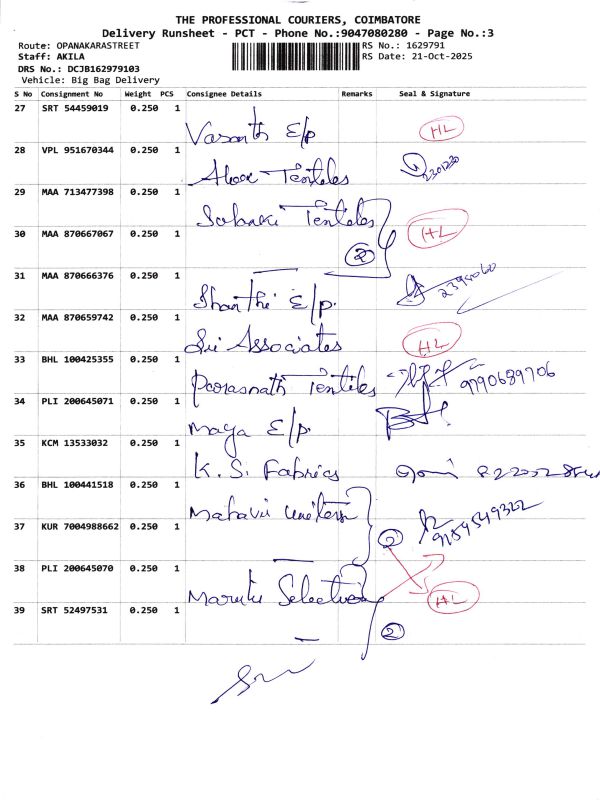 THE PROFESSIONAL COURIERS, COIMBATORE
Delivery Runsheet - PCT - Phone No.:9047080280 - Page No.:3
Route: OPANAKARASTREET RS No.: 1629791
Staff: AKILA RS Date: 21-Oct-2025
DRS No.: DCJB162979103
Vehicle: Big Bag Delivery
S No Consignment No Weight PCS Consignee Details Remarks Seal & Signature
27 SRT 54459019 0.250 1
Vasanth E/p HL
28 VPL 951670344 0.250 1
Textiles 2301230
29 MAA 713477398 0.250 1
Solanki Textiles
30 MAA 870667067 0.250 1 HL
2
31 MAA 870666376 0.250 1
Shanthi E/p.
32 MAA 870659742 0.250 1
Sri Associates HL
33 BHL 100425355 0.250 1
Parasnath Textiles 9790689706
34 PLI 200645071 0.250 1
Maya E/p.
35 KCM 13533032 0.250 1
K. S. Fabrics
36 BHL 100441518 0.250 1
Mahavir
37 KUR 7004988662 0.250 1
2 9159549322
38 PLI 200645070 0.250 1
Maruti Selection HL
39 SRT 52497531 0.250 1
2